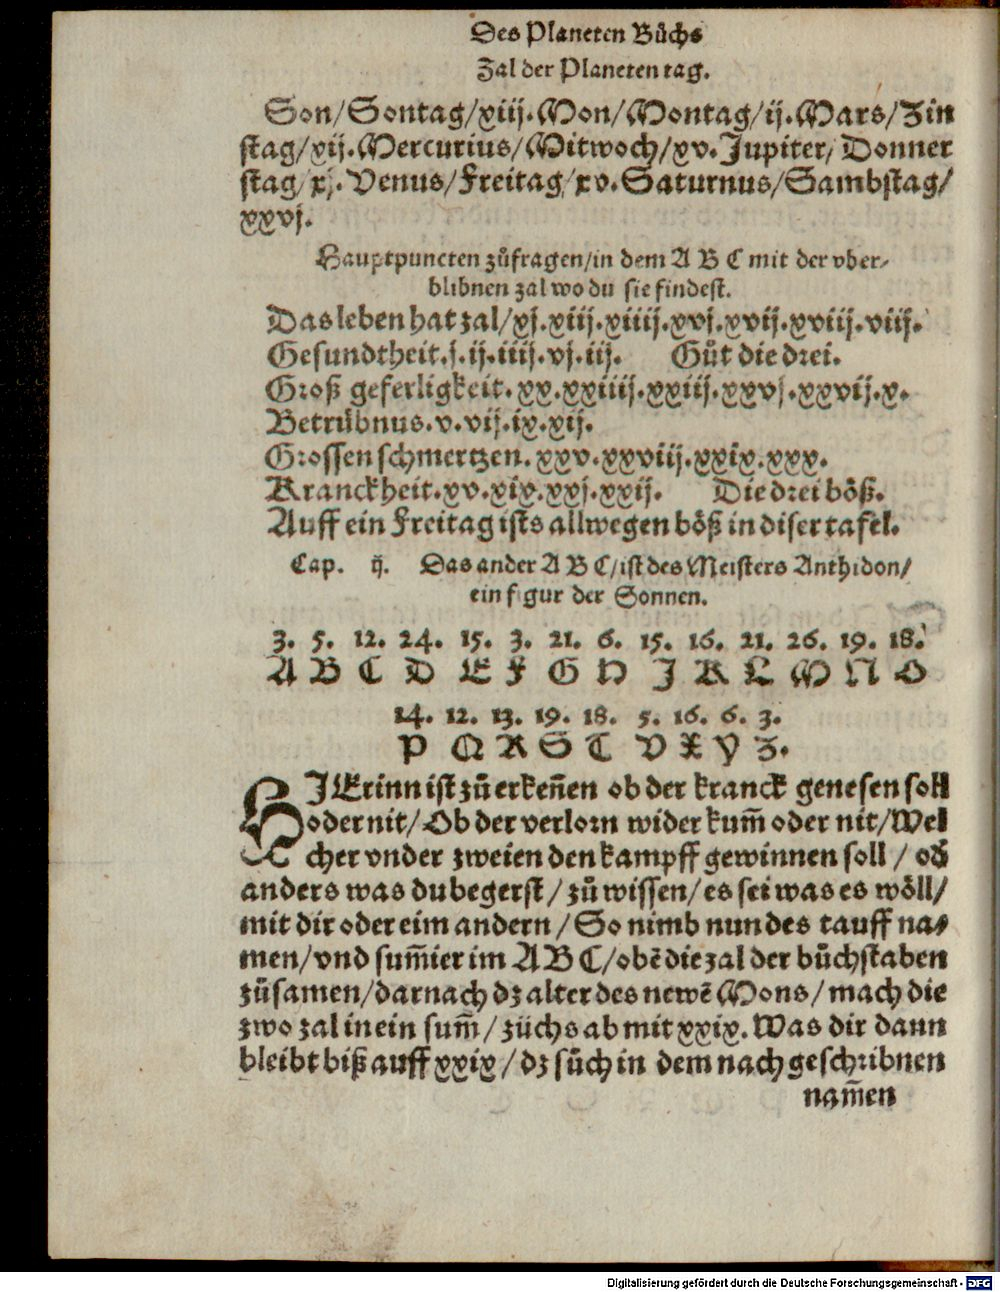 Des Planeten Bůchs
Zal der Planeten tag.
Son/Sontag/xiij.Mon/Montag/ij.Mars/Zin
stag/xij.Mercurius/Mitwoch/xv.Jupiter/Donner
stag/xj.Venus/Freitag/xv.Saturnus/Sambstag/
xxvj.
Hauptpuncten zůfragen/in dem A B C mit der vber-
blibnen zal wo du sie findest.
Das leben hat zal/xj.xiij.xiiij.xvj.xvij.xviij.viij.
Gesundtheit.j.ij.iiij.vj.iij. Gůt die drei.
Groß geferligkeit.xx.xxiiij.xxiij.xxvj.xxvij.x.
Betrůbnus.v.vij.ix.xij.
Grossen schmertzen.xxv.xxviij.xxix.xxx.
Kranckheit.xv.xix.xxj.xxij. Die drei bőß.
Auff ein Freitag ists allwegen bőß in diser tafel.
Cap. ij. Das ander A B C/ist des Meisters Anthidon/
ein figur der Sonnen.
3. 5. 12. 24. 15. 3. 21. 6. 15. 16. 21. 26. 19. 18.
A B C D E F G H J K L M N O
14. 12. 13. 19. 18. 5. 16. 6. 3.
P Q R S T V X Y Z.
HJErinn ist zů erkeñen ob der kranck genesen soll
oder nit/Ob der verlorn wider kum̃ oder nit/Wel
cher vnder zweien den kampff gewinnen soll / ob
anders was du begerst/zů wissen/es sei was es wőll/
mit dir oder eim andern/So nimb nun des tauff na-
men/vnd sum̃ier im A B C/obẽ die zal der bůchstaben
zůsamen/darnach dz alter des newẽ Mons/mach die
zwo zal in ein sum̃/züchs ab mit xxix.Was dir dann
bleibt biß auff xxix/dz sůch in dem nach geschribnen
nam̃en
Digitalisierung gefördert durch die Deutsche Forschungsgemeinschaft - DFG